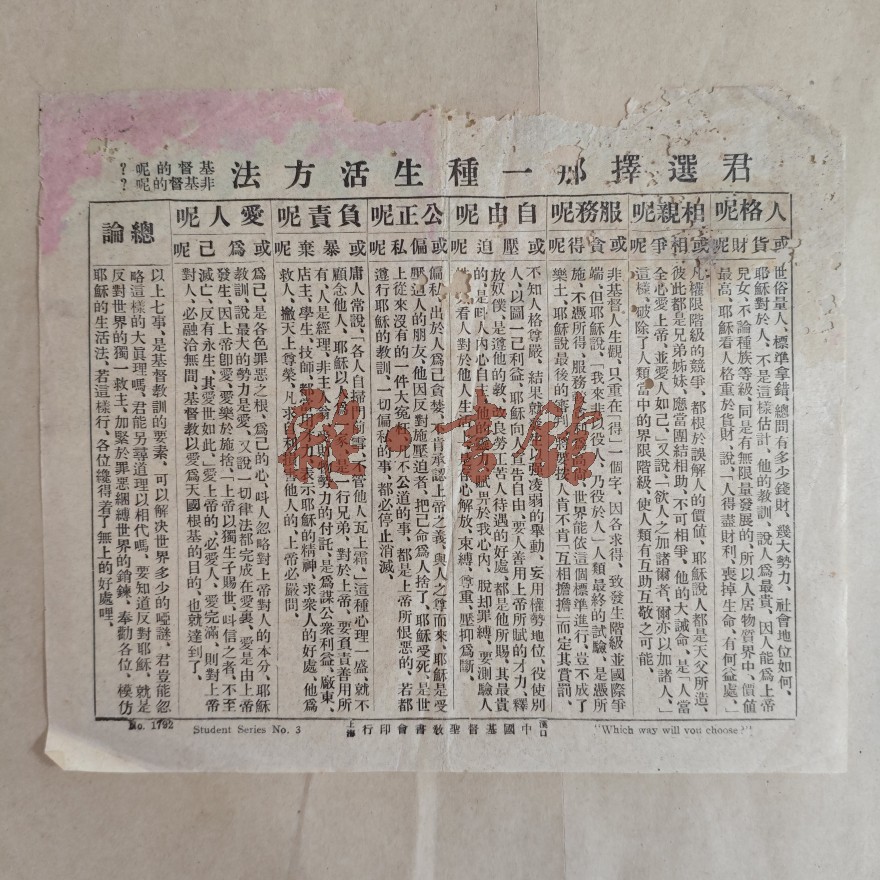 君選擇那一種生活方法
基督的呢?
非基督的呢?
人格呢
或貨財呢
世俗量人、標準拿錯、總問有多少錢財、幾大勢力、社會地位如何、
耶穌對於人、不是這樣估計、他的教訓、說人為最貴、因人能為上帝
兒女、不論種族等級、同是有無限量發展的、所以人居物質界中、價値
最高、耶穌看人格重於貨財、說、「人得盡財利、喪掉生命、有何益處、」
相親呢
或相爭呢
凡權限階級的競爭、都根於誤解人的價值、耶穌說人都是天父所造、
彼此都是兄弟姊妹、應當團結相助、不可相爭、他的大誡命、是「人當
全心愛上帝、並愛人如己、」又說、「欲人之加諸爾者、爾亦以加諸人、」
這樣、破除了人類當中的界限階級、使人類有互助互敬之可能、
服務呢
或貪得呢
非基督人生觀、只重在「得」一個字、因各求得、致發生階級並國際爭
端、但耶穌說、「我來非以役人、乃役於人」人類最終的試驗、是憑所
施、不憑所得、服務人
利
世界能依這個標準進行、豈不成了
樂土、耶穌說最後的審
人肯不肯「互相擔擔」而定其賞罰、
自由呢
或壓迫呢
不知人格尊嚴、結果就
強凌弱的舉動、妄用權勢地位、役使別
人、以圖一己利益、耶穌向人宣告自由、要人善用上帝所賦的才力、釋
放奴僕、是遵他的教、改良勞苦人待遇的好處、都是他所賜、其最貴
的、是叫人內心自主、他的
賦畀於我心內、脫却罪縛、要測驗人
看人對於他人生
是存心解放、束縛、尊重、壓抑為斷、
公正呢
或偏私呢
偏私、出於人為己貪婪、不肯承認上帝之義、與人之尊而來、耶穌是受
壓迫人的朋友、他因反對施壓迫者、把己命為人捨了、耶穌受死、是世
上從來沒有的一件大冤
不公道的事、都是上帝所恨惡的、若都
遵行耶穌的教訓、一切偏私的事、都必停止消滅、
負責呢
或暴棄呢
庸人常說、「各人自掃門前雪、不管他人瓦上霜、」這種心理一盛、就不
顧念他人、耶穌以人為一家、是一行兄弟、對於上帝、要負責善用所
有、人是經理、非主人翁、
財
勢力的付託、是為謀公衆利益、廠東、
店主、學生、技師、都當
力表示耶穌的精神、求衆人的好處、他為
救人、撇天上尊榮、凡求自利
害他人的、上帝必嚴問、
愛人呢
或為己呢
為己、是各色罪惡之根、為己的心、叫人忽略對上帝對人的本分、耶穌
教訓、說最大的勢力是愛、又說一切律法都完成在愛裏、愛是由上帝
發生、因上帝卽愛、愛樂於施捨、「上帝以獨生子賜世、叫信之者、不至
滅亡、反有永生、其愛世如此、」愛上帝的、必愛人、愛完滿、則對上帝
對人、必融洽無間、基督敎以愛為天國根基的目的、也就達到了、
總論
以上七事、是基督教訓的要素、可以解決世界多少的啞謎、君豈能忽
略這樣的大眞理嗎、君能另尋道理以相代嗎、要知道反對耶穌、就是
反對世界的獨一救主、加緊於罪惡綑縛世界的銷鍊、奉勸各位、模仿
耶穌的生活法、若這樣行、各位纔得着了無上的好處哩、
No. 1792
Student Series No. 3
漢口上海中國基督聖教書會印行
"Which way will you choose?"